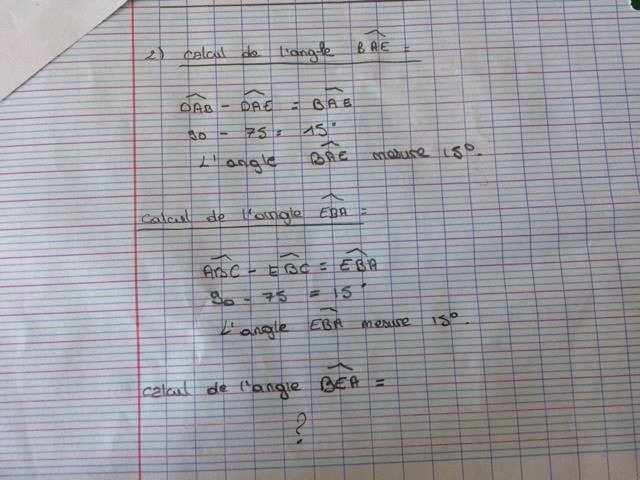 2) calcul de l'angle BAE =
DAB - DAE = BAE
90 - 75 = 15°
L'angle BAE mesure 15°.
calcul de l'angle EBA =
ABC - EBC = EBA
90 - 75 = 15°
L'angle EBA mesure 15°.
calcul de l'angle BEA =
?